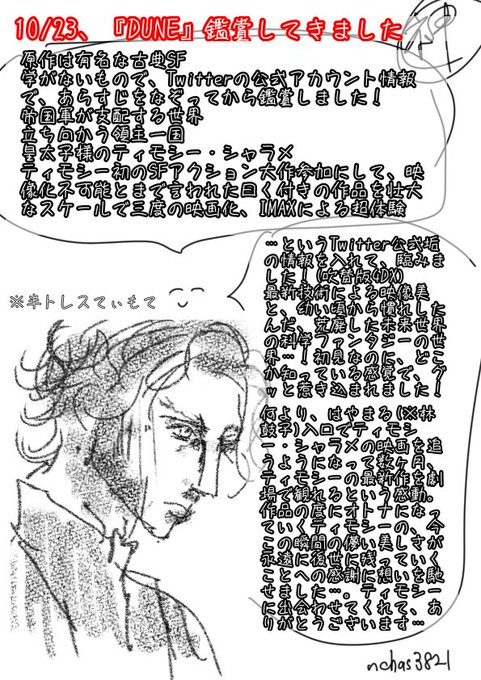 10/23、『DUNE』鑑賞してきました
原作は有名な古典SF
学がないもので、Twitterの公式アカウント情報
で、あらすじをなぞってから鑑賞しました！
帝国軍が支配する世界
立ち向かう領主一国
皇太子様のティモシー・シャラメ
ティモシー初のSFアクション大作参加にして、映
像化不可能とまで言われた曰く付きの作品を壮大
なスケールで三度の映画化、IMAXによる超体験
…というTwitter公式垢
の情報を入れて、臨みま
した！(吹替版4DX)
最新技術による映像美
と、幼い頃から慣れした
んだ、荒廃した未来世界
の科学ファンタジーの世
界…！初見なのに、どこ
か知っている感覚で、グ
ッと惹き込まれました！
何より、はやまる(※林
鼓子)入口でティモシ
ー・シャラメの映画を追
うようになって数ヶ月、
ティモシーの最新作を劇
場で観れるという感動。
作品の度にオトナになっ
ていくティモシーの、今
この瞬間の儚い美しさが
永遠に後世に残っていく
ことへの感謝に想いを馳
せました…。ティモシー
に出会わせてくれて、あ
りがとうございます…
※半トレスてぃもて
nchas3821